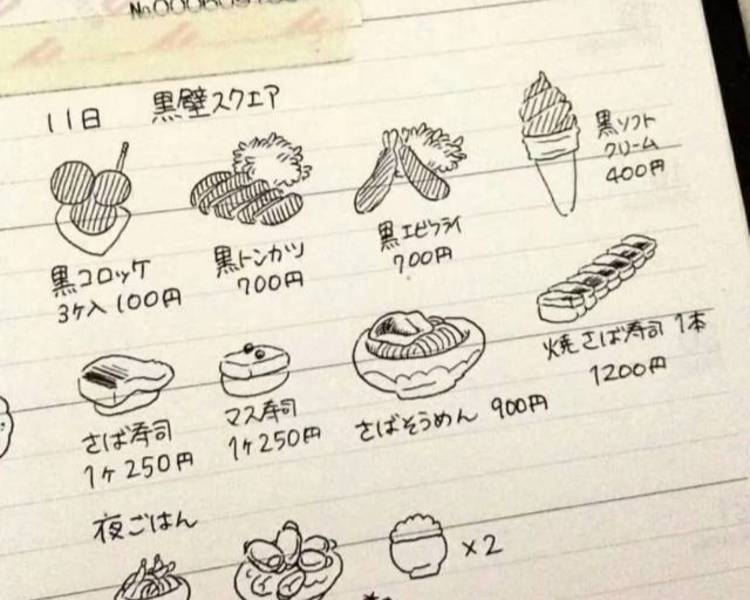 11日 黒壁スクエア
黒コロッケ
3ケ入 100円
黒トンカツ
700円
黒エビフライ
700円
黒ソフト
クリーム
400円
さば寿司
1ケ250円
マス寿司
1ケ250円
さばそうめん 900円
焼さば寿司 1本
1200円
夜ごはん
×2